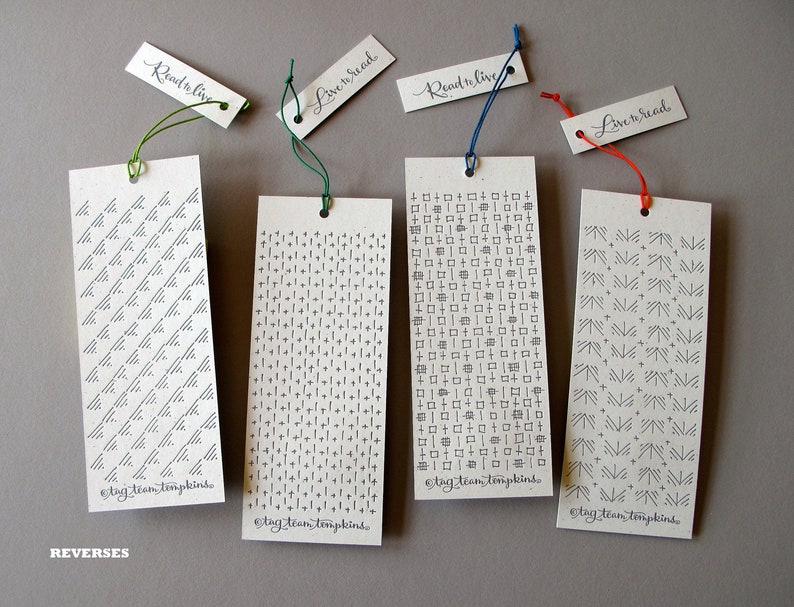 Read to live
Live to read
Read to live
Live to read
©tag team tompkins
©tag team tompkins
©tag team tompkins
©tag team tompkins
REVERSES